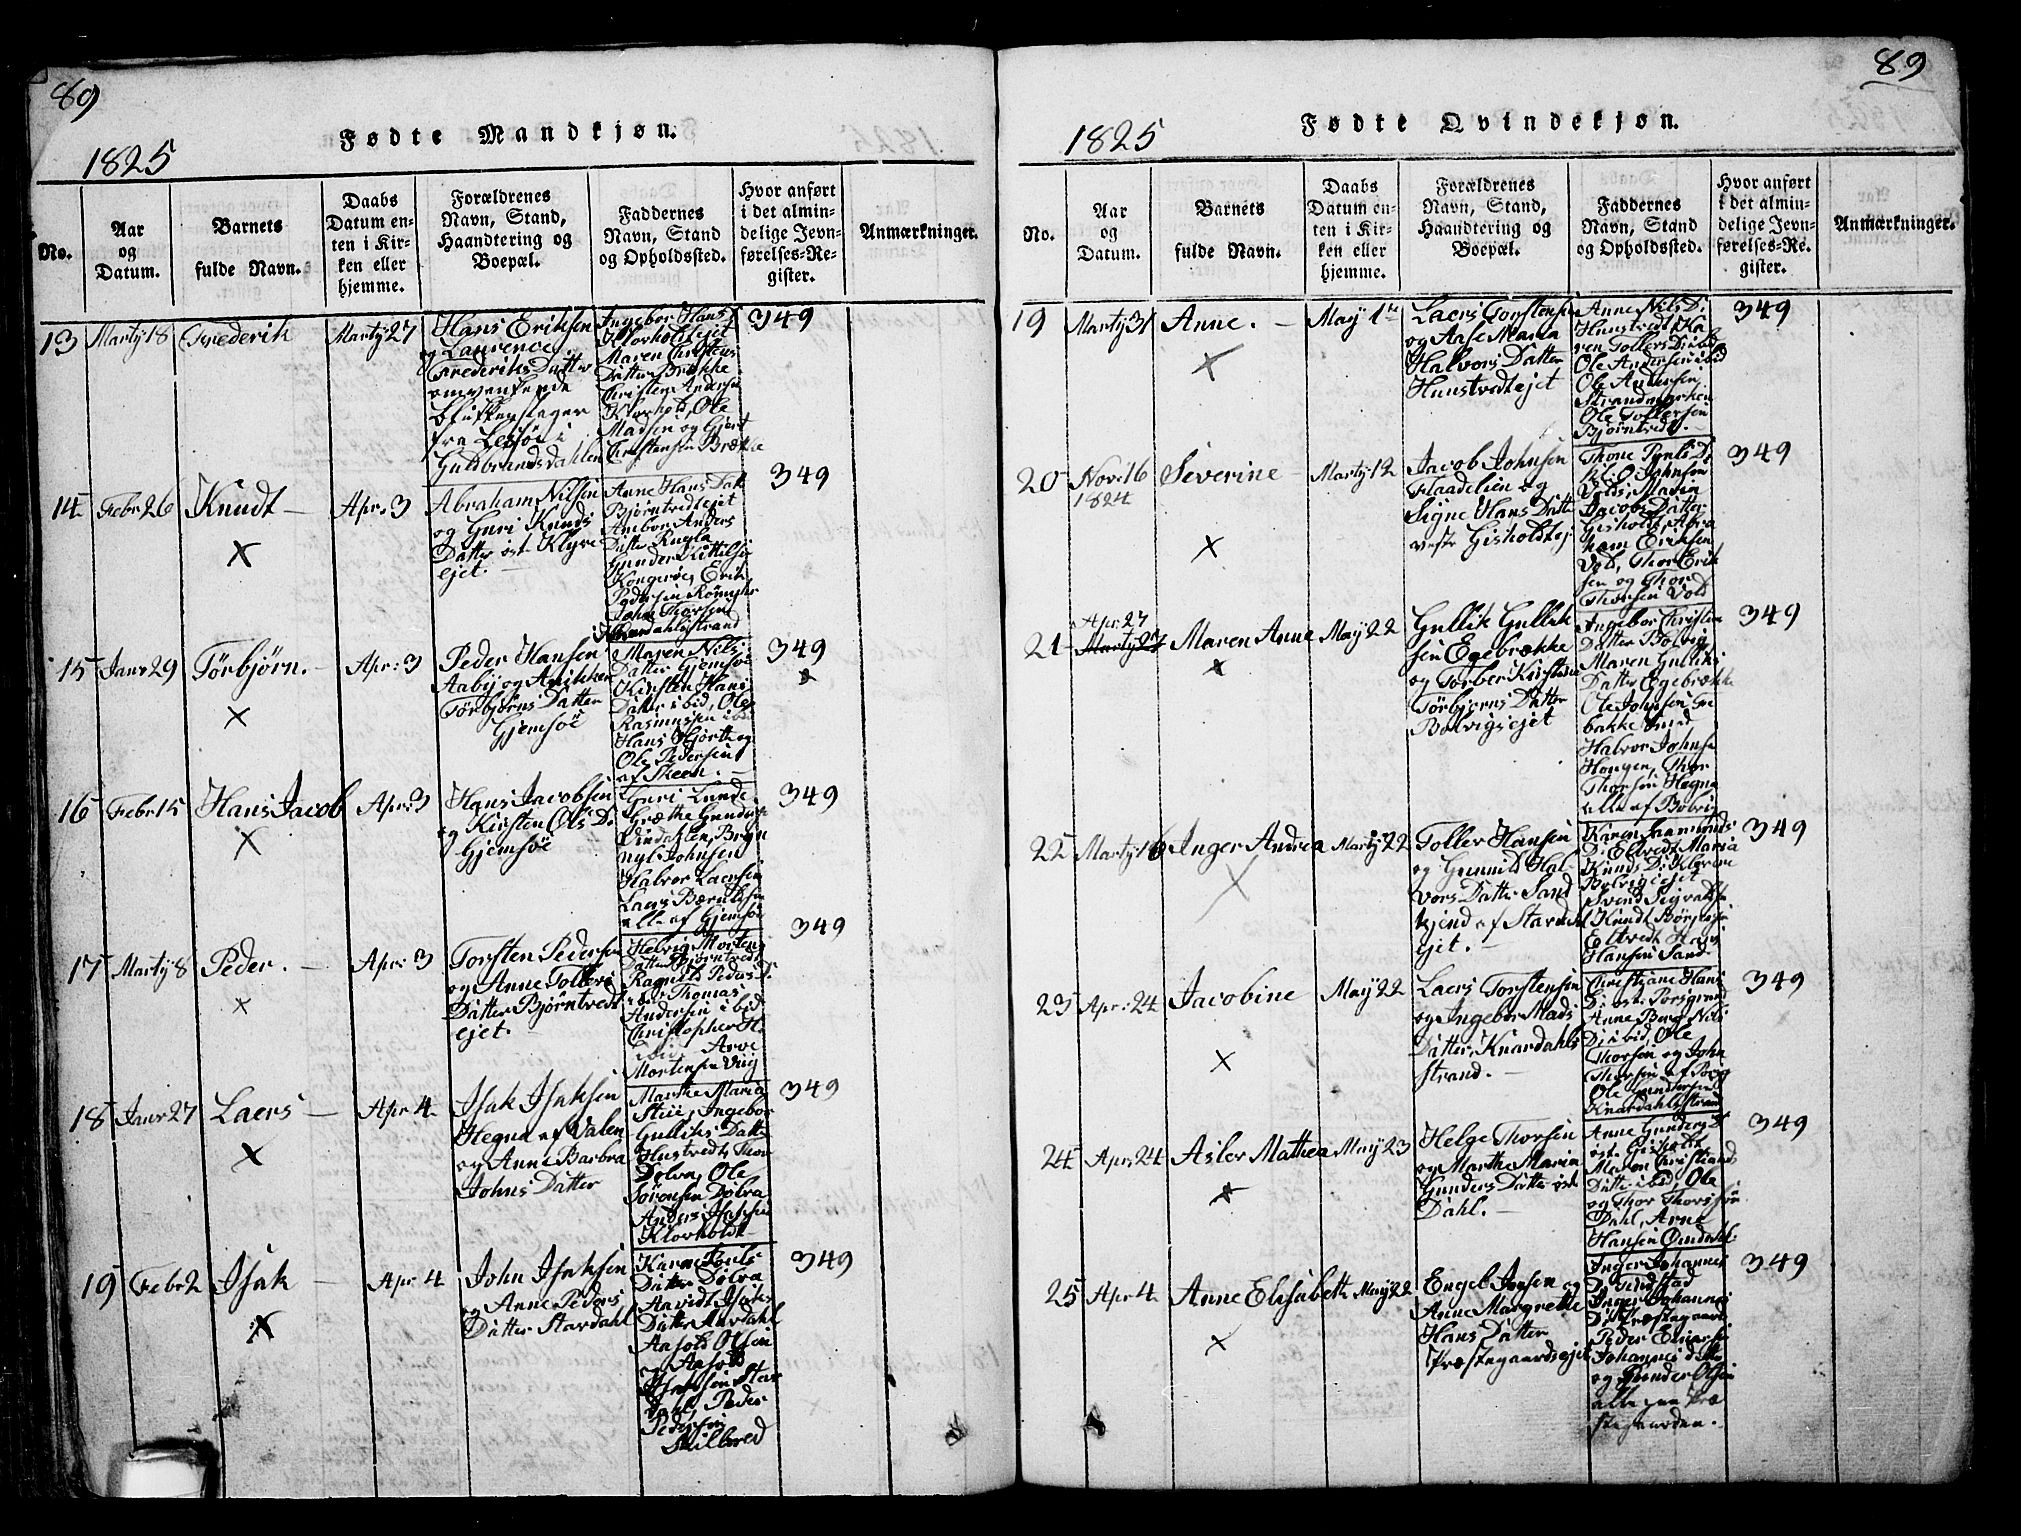 89
1825
Fødte Mandkjøn.
No.
Aar
og
Datum.
Barnets
fulde Navn.
Daabs
Datum en-
ten i Kir-
ken eller
hjemme.
Forældrenes
Navn, Stand,
Haandtering og
Boepæl.
Faddernes
Navn, Stand
og Opholdssted.
Hvor anført
i det almin-
delige Jevn-
førelses-Re-
gister.
Anmærkninger.
13
Marty 18
Frederik
Marty 27
Hans Eriksen
og Laurence
Frederiks Datter
omvankende
blikkenslager
fra Lessöe i
Guldbrandsdahlen
Ingebor Hans D
Klovholtejet
Maren Christens
Datter Brække
Christen Anders
Klovhold, Ole
Madsen og Gjert
Christensen Brække
349
14
Febr 26
Knudt
Apr: 3
Abraham Nilsen
og Guri Knuds
Datter öst Klyve
ejet.
Anne Hans Dat
Bjørntvedtejet
Ambor Anders
Datter
Gunder Kittilsen
Kongerøe, Erik
Pedersen
John Thorsen
Knardahlsstrand
349
15
Janr 29
Törbjörn.
Apr: 3
Peder Hansen
Aaby og Anikken
Törbjörns Datter
Gjemsöe
Maren Nils
Datter Gjemsöe
Kirsten Hans
Datter ibid, Ole
Rasmussen ibid
Hans Hjorth og
Ole Pedersen
af Skeen.
349
16
Febr 15
Hans Jacob
Apr: 3
Hans Jacobsen
og Kirsten Ols D.
Gjemsöe
Guri Lunde
Grethe Gunders
Johnsen
Halvor Laersen
Laers
alle af Gjemsöe
349
17
Marty 8
Peder.
Apr: 3
Torsten Pedersen
og Anne Tollers
Datter Bjørntvedt
ejet.
Helvig Mortens
Datter Bjørntvedt
Ragnild Peders D.
Thomas
Andersen ibid
Christopher H.
ibid Arve
Mortensen Viig
349
18
Janr 27
Laers
Apr 4
Isak Isaksen
Hegna af Valen
og Anne Barbra
Johns Datter
Marthe Maria
Stii, Ingebor
Gulliks Datter
Hustvedt, Thor
Dölva, Ole
Sörensen Dölva
Anders Isaksen
Klovholdt
349
19
Febr 2
Isak
Apr 4
John Isaksen
og Anne Peders
Datter Stardahl
Karen Pouls
Datter Dölva
Isaks
Datter Stardahl
Aasold Olsen
og Aasold
Isaksen Star
dahl, Peder
Pedersen
Skilbred
349
89
1825
Fødte Qvindekjøn.
No.
Aar
og
Datum.
Barnets
fulde Navn.
Daabs
Datum en-
ten i Kir-
ken eller
hjemme.
Forældrenes
Navn, Stand,
Haandtering og
Boepæl.
Faddernes
Navn, Stand
og Opholdssted.
Hvor anført
i det almin-
delige Jevn-
førelses-Re-
gister.
Anmærkninger.
19
Marty 31
Anne.
May 1te
Laers Torstensen
og Aase Maria
Halvors Datter
Hunstvedtejet
Anne Nils D:
Hunstvedt Ka
ren Tollers D: ibid
Ole Andersen ibid
Ole Andersen,
Strandmarken
Ole Tollersen
Bjørntvedt.
349
20
Nov: 16
1824
Severine
Marty 12
Jacob Johnsen
Flaadelien og
Signe Hans Datter
vestr Gisholdtej
Thone Pouls D:
Johnsen
Vold, Maria
Jacobs Datter
Gisholdt, Abra
ham Eriksen
Vold, Thor Erik
sen og Thor
Thorsen Vold
349
21
Apr. 27
Marty 27
Maren Anne
May 22
Gullik Gullik
sen Egebrække
og Torber Kirstine
Törbjørns Datter
Bolvigsejet
Ingebor Christen
Datter Bolvig
Maren Gulliks
Datter Egebrække
Ole Johnsen
Halvor Johnsen
Hougen, Thor
Thorsen Hegna
alle af Bolvig
349
22
Marty 16
Inger Andrea
Marty 22
Toller Hansen
og Gunnild Hal-
vors Datter Sand
kjend af Stardahl
ejet.
Karen Amunds
D: Eltvedt Maria
Knuds D:
Bolvigsejet
Svend Sigvaldsen
Knudt Börgesen
Eltvedt Hans
Hansen Sand
349
23
Apr: 24
Jacobine
May 22
Laers Torstensen
og Ingebor Mads
Datter, Knardahls
strand.
Christiane Hans
D: östr Porsgrund
Anne Borg Nils
D: ibid, Ole
Thorsen og John
Thorsen af Borg
Ole Gundersen
Knardahlsstrand
349
24
Apr: 24
Asler Mathea
May 23
Helge Thorsen
og Marthe Maria
Gunders Datter östr
Dahl.
Anne Gunders D
östr Gisholdt
Maren Christians
Datter ibid, Ole
og Thor Thorsen
Dahl, Arne
Hansen Omdahl
349
25
Apr 4
Anne Elisabeth
May 22
Engel Jensen og
Anne Margrethe
Hans Datter
Præstegaardsejet
Inger Johannes
D: Tufstad
Inger Johannes
D: Præstegaard
Peder Einersen
Johannes ditto
og Gunder Olsen
alle paa Præ
stegaarden.
349